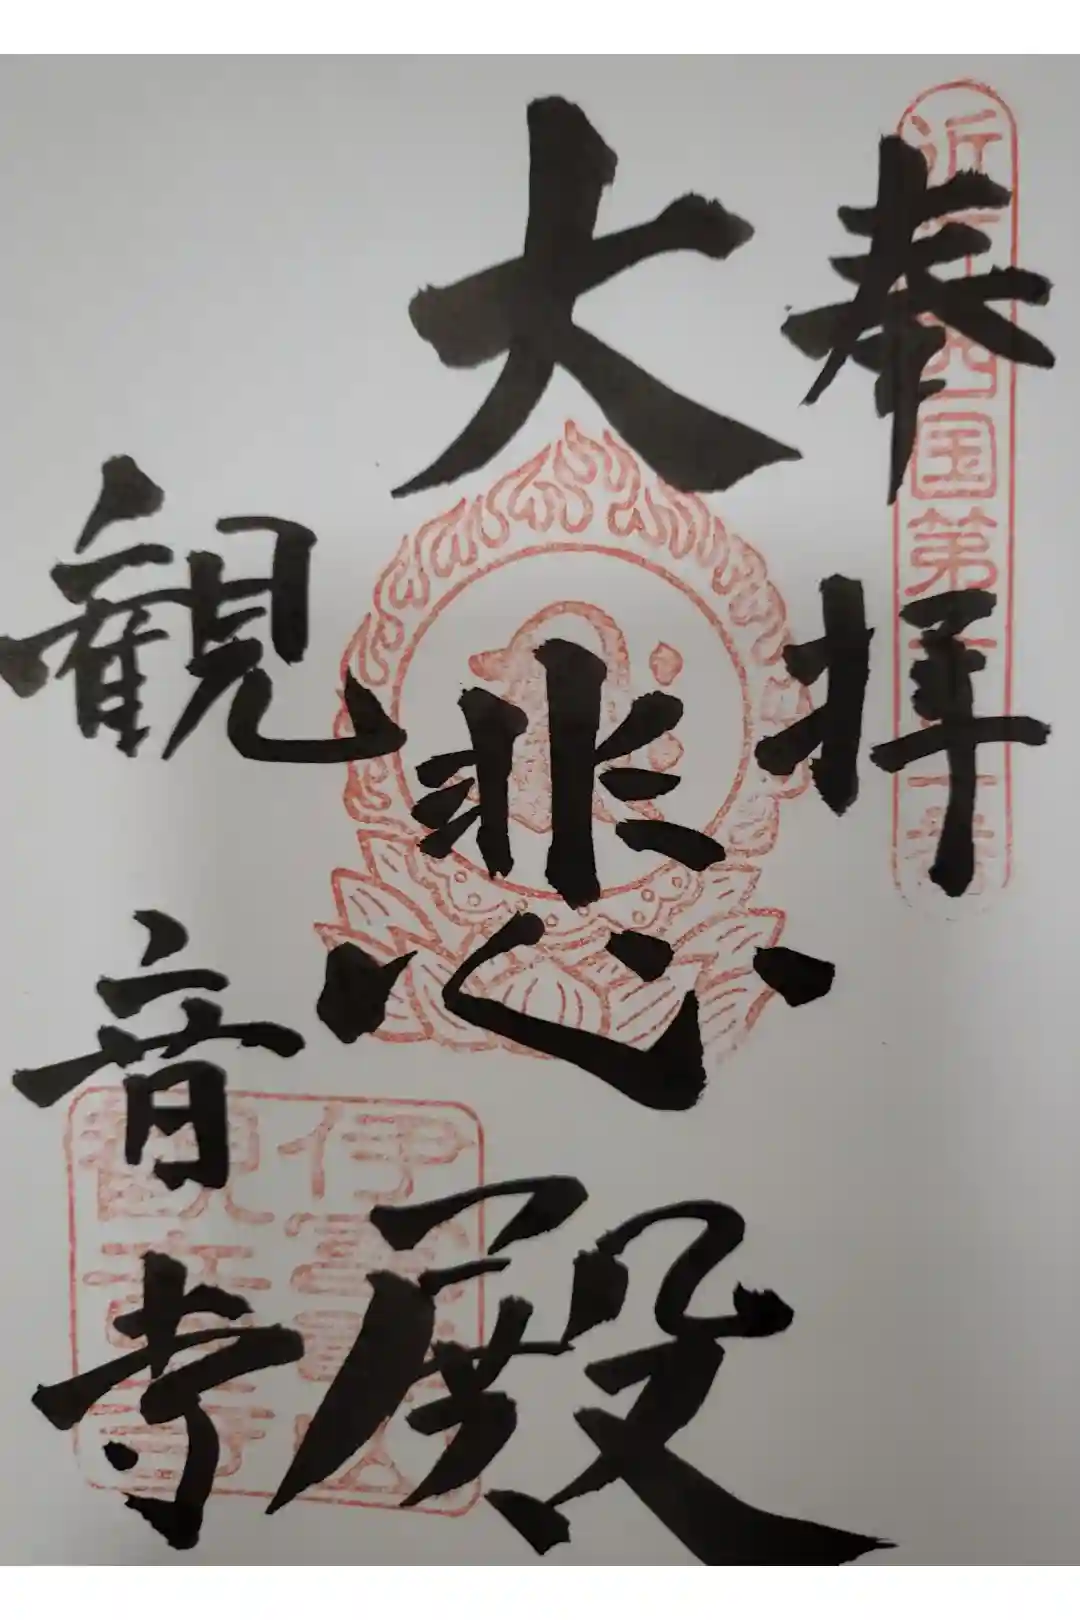 奉拝
大悲殿
観音寺
近江西国第
伊
観音寺